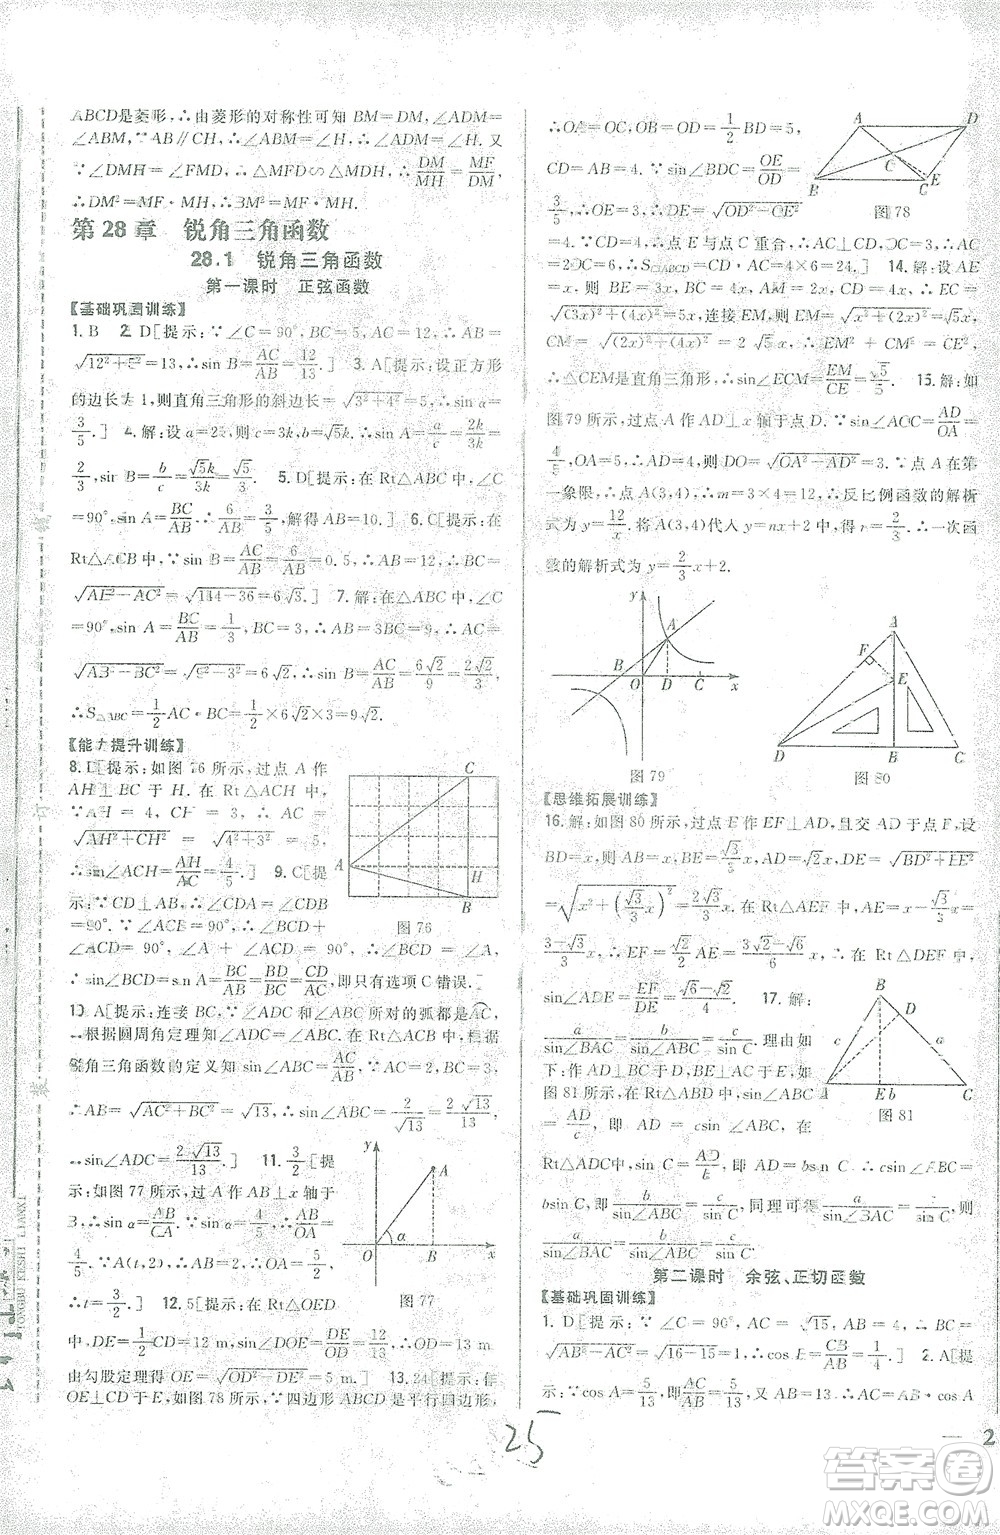 ABCD是菱形,∴由菱形的对称性可知 BM=DM,∠ADM
=∠ABM,∵AB∥CH,∴∠ABM=∠H,∴∠ADM=∠H.又
∵∠DMH=∠FMH,∴△DMF∽△HMD,∴DM/MH=MF/DM,
∴DM²=MF·MH,∴BM²=MF·MH.
第28章 锐角三角函数
28.1 锐角三角函数
第一课时 正弦函数
【基础巩固训练】
1. B 2. D[提示:∵∠C=90°,BC=5,AC=12,∴AB=
√12²+5²=13,∴sin B=AC/AB=12/13.] 3. A[提示:设正方形
的边长为1,则直角三角形的斜边长=√3²+4²=5,∴sin α=
3/5.] 4. 解:设 a=2k,则 c=3k,b=√5k,∴sin A=a/c=2k/3k=
2/3,sin B=b/c=√5k/3k=√5/3. 5. D[提示:在 Rt△ABC 中,∠C
=90°,sin A=BC/AB=6/AB=3/5,解得 AB=10.] 6. C[提示:在
Rt△ACB 中,∵sin B=AC/AB=6/12=0.5,∴AB=12,∴BC=
√AB²-AC²=√144-36=6√3.] 7. 解:在△ABC 中,∠C=
90°,sin A=BC/AB=1/3,BC=3,∴AB=9,∴AC=
√AB²-BC²=√9²-3²=6√2,∴sin B=AC/AB=6√2/9=2√2/3,
∴S△ABC=1/2 AC·BC=1/2×6√2×3=9√2.
【能力提升训练】
8. D[提示:如图 76 所示,过点 A 作
AH⊥BC 于 H,在 Rt△ACH 中,AC=
√AH²+CH²=√4²+3²=5,
∴sin∠ACH=AH/AC=4/5.] 9. C[提
示:∵CD⊥AB,∴∠CDA=∠CDB=
90°,∵∠ACB=90°,∴∠BCD+
∠ACD=90°,∠ACD+∠A=90°,∴∠BCD=∠A,
∴sin∠BCD=sin A=BD/BC=BC/AB=CD/AC,即只有选项 C 错误.]
10. A[提示:连接 BC,∵∠ADC 和∠ABC 所对的弧都是AC,
∴根据圆周角定理知∠ADC=∠ABC,在 Rt△ACB 中,根据
锐角三角函数的定义知 sin∠ABC=AC/AB,∵AC=2,BC=3,
∴AB=√AC²+BC²=√13,∴sin∠ABC=2/√13=2√13/13,
∴sin∠ADC=2√13/13.] 11. 3/2[提
示:如图 77 所示,过 A 作 AB⊥x 轴于
B,∴sin α=AB/OA,∵sin α=4/5,∴AB/OA=
4/5,∵A(t,2),∴AB=2,∴OA=5/2,
∴t=3/2.] 12. 5[提示:在 Rt△OED
中,DE=1/2CD=12 m,sin∠DOE=DE/OD=12/13,∴OD=13 m,由
勾股定理得 OE=√OD²-DE²=5 m.] 13. 24[提示:作
OE⊥CD 于 E,如图 78 所示:∵四边形 ABCD 是平行四边形,
图 76
图 77
∴OA=OC,OB=OD=1/2BD=5,
CD=AB=4.∵sin∠BDC=OE/OD=
3/5,∴OE=3,∴DE=√OD²-OE²
=4.∵CD=4,∴点 E 与点 C 重合,∴AC⊥CD,OC=3,
∴AC=6,∴S▱ABCD=CD·AC=4×6=24.] 14. 解:设 AE=
x,则 BE=3x,BC=4x,AM=2x,CD=4x,∴EC=
√(3x)²+(4x)²=5x,连接 EM,EM=√x²+(2x)²=√5x,
CM=√(2x)²+(4x)²=2√5x,∴EM²+CM²=CE²,
∴△CEM是直角三角形,∴sin∠ECM=EM/CE=√5/5. 15. 解:如
图 79 所示,过点 A 作 AD⊥x 轴于点 D.∵sin∠AOC=AD/OA=
4/5,OA=5,∴AD=4,∴DO=√OA²-AD²=3,∵点 A 在第
一象限,∴点 A(3,4),∴m=3×4=12,∴反比例函数的解析
式为 y=12/x.将 A(3,4)代入 y=nx+2 中,得 n=2/3,∴一次函
数的解析式为 y=2/3x+2.
图 78
图 79
图 80
【思维拓展训练】
16. 解:如图 80 所示,过点 E 作 EF⊥AD,且交 AD 于点 F,设
BD=AB=x,∴BC=BE=√3/3x,DE=√BD²+BE²
=√x²+(√3/3x)²=2√3/3x,在 Rt△AEF 中,AE=x-√3/3x=
3-√3/3x,∴EF=√2/2AE=3√2-√6/6x,∴在 Rt△DEF 中,
sin∠ADE=EF/DE=√6-√2/4. 17. 解:
a/sin∠BAC=b/sin∠ABC=c/sin∠BCA.理由如
下:作 AD⊥BC,BE⊥AC,D,E 为垂足,如
图 81 所示.在 Rt△ABD 中,sin∠ABC
=AD/c,即 AD=csin∠ABC,在
Rt△ADC 中,sin∠ACD=AD/b,即 AD=bsin∠ACB=
bsin∠BCA,即 b/sin∠ABC=c/sin∠BCA,同理可得 a/sin∠BAC=c/sin∠BCA.则
a/sin∠BAC=b/sin∠ABC=c/sin∠BCA.
图 81
第二课时 余弦、正切函数
【基础巩固训练】
1. D[提示:∵Rt△ABC 中,∠C=90°,AB=4,AC=1,∴BC=
√AB²-AC²=√16-1=√15,∴cos B=CB/AB=√15/4.] 2. A[提
示:∵cos A=5/13,∴cos A=AC/AB=5/13,又∵AB=13,∴AC=AB·cos A
25
2
TONGBU KESHI LIANXI
答案圈
MXQE.COM